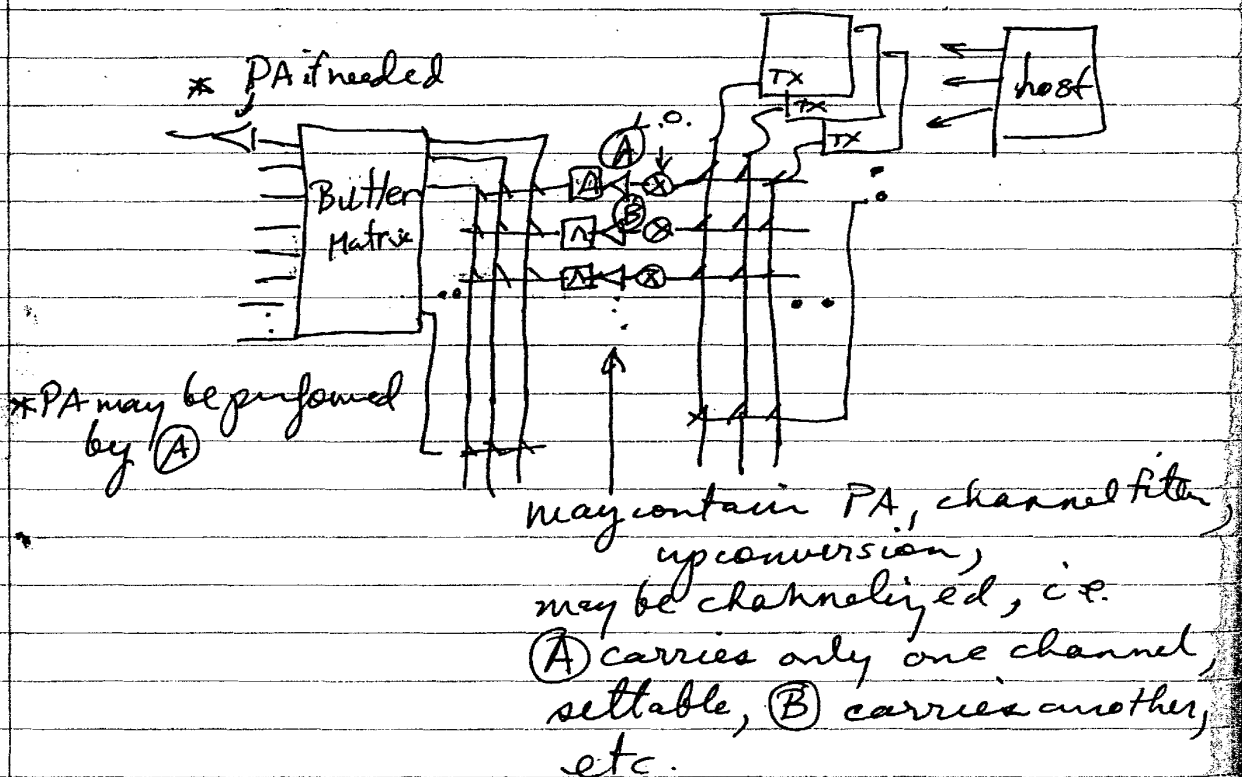 * PA if needed
TX
TX
TX
host
L.O.
A
B
Butler
Matrix
* PA may be perfomed
by A
may contain PA, channel filter,
upconversion,
may be channelized, i.e.
A carries only one channel,
settable, B carries another,
etc.